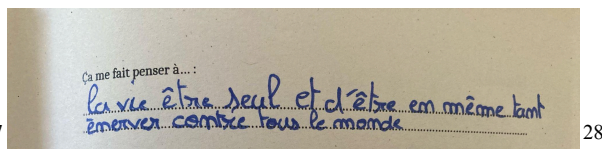 Ça me fait penser à... :
la vie être seul et d'être en même tant
énerver contre tous le monde
28